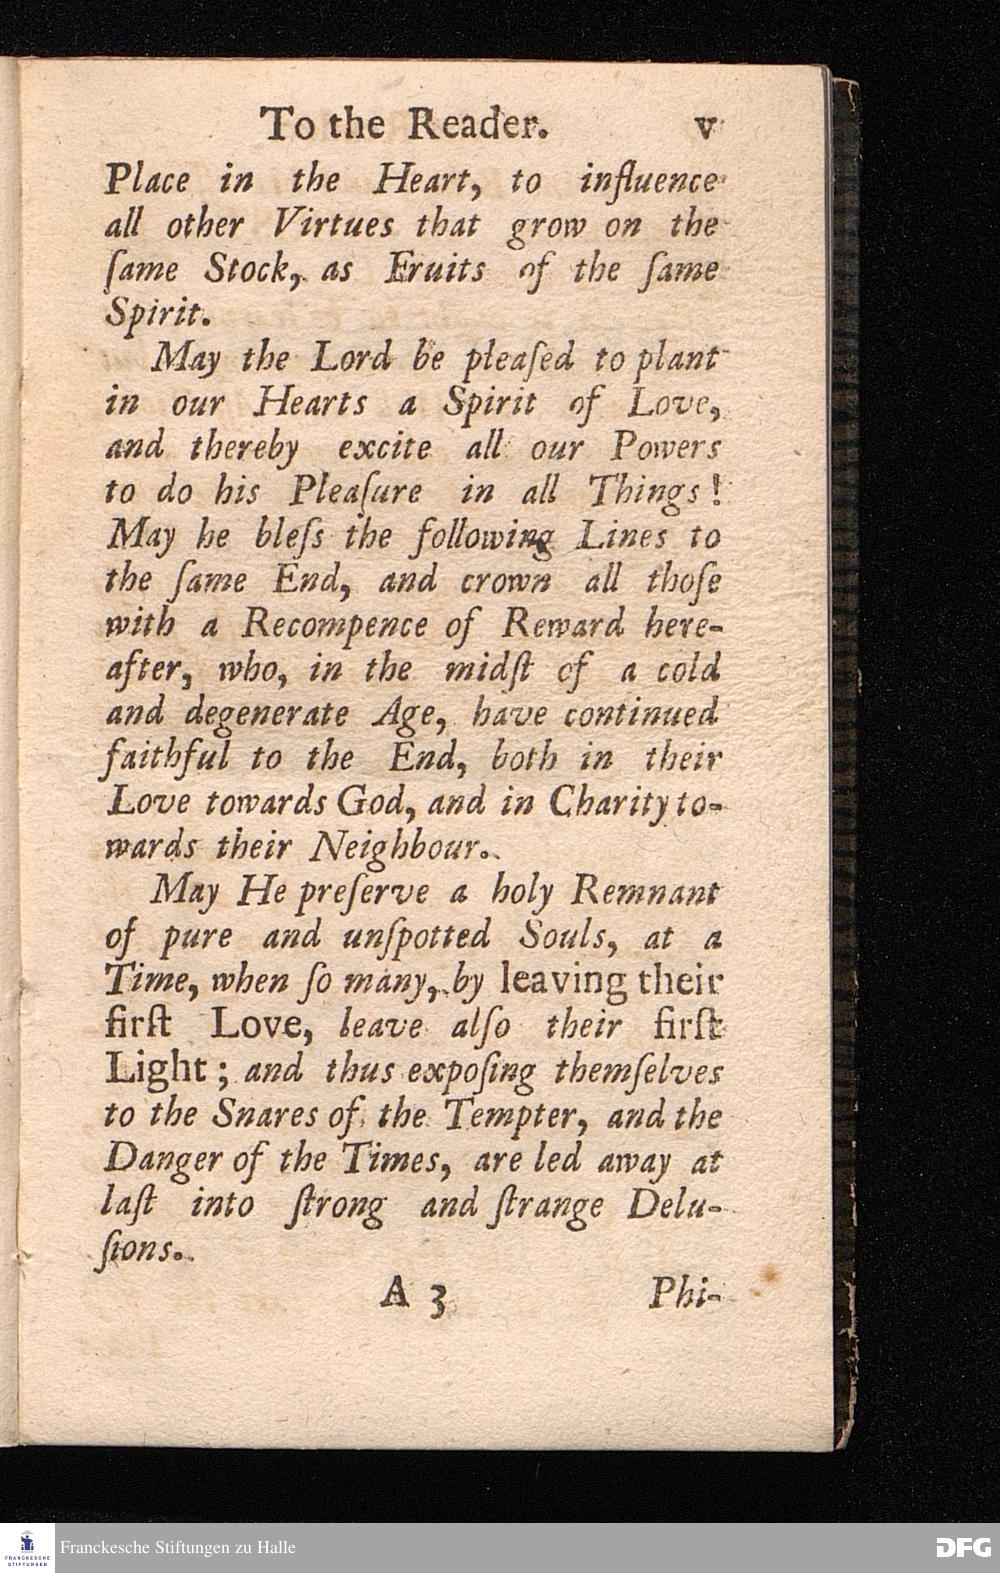 To the Reader. v
Place in the Heart, to influence
all other Virtues that grow on the
ſame Stock, as Fruits of the ſame
Spirit.
May the Lord be pleaſed to plant
in our Hearts a Spirit of Love,
and thereby excite all our Powers
to do his Pleaſure in all Things!
May he bleſs the following Lines to
the ſame End, and crown all thoſe
with a Recompence of Reward here-
after, who, in the midſt of a cold
and degenerate Age, have continued
faithful to the End, both in their
Love towards God, and in Charity to-
wards their Neighbour.
May He preſerve a holy Remnant
of pure and unſpotted Souls, at a
Time, when ſo many, by leaving their
firſt Love, leave alſo their firſt
Light; and thus expoſing themſelves
to the Snares of the Tempter, and the
Danger of the Times, are led away at
laſt into ſtrong and ſtrange Delu-
ſions.
A 3 Phi-
FRANCKESCHE
STIFTUNGEN
Franckesche Stiftungen zu Halle
DFG